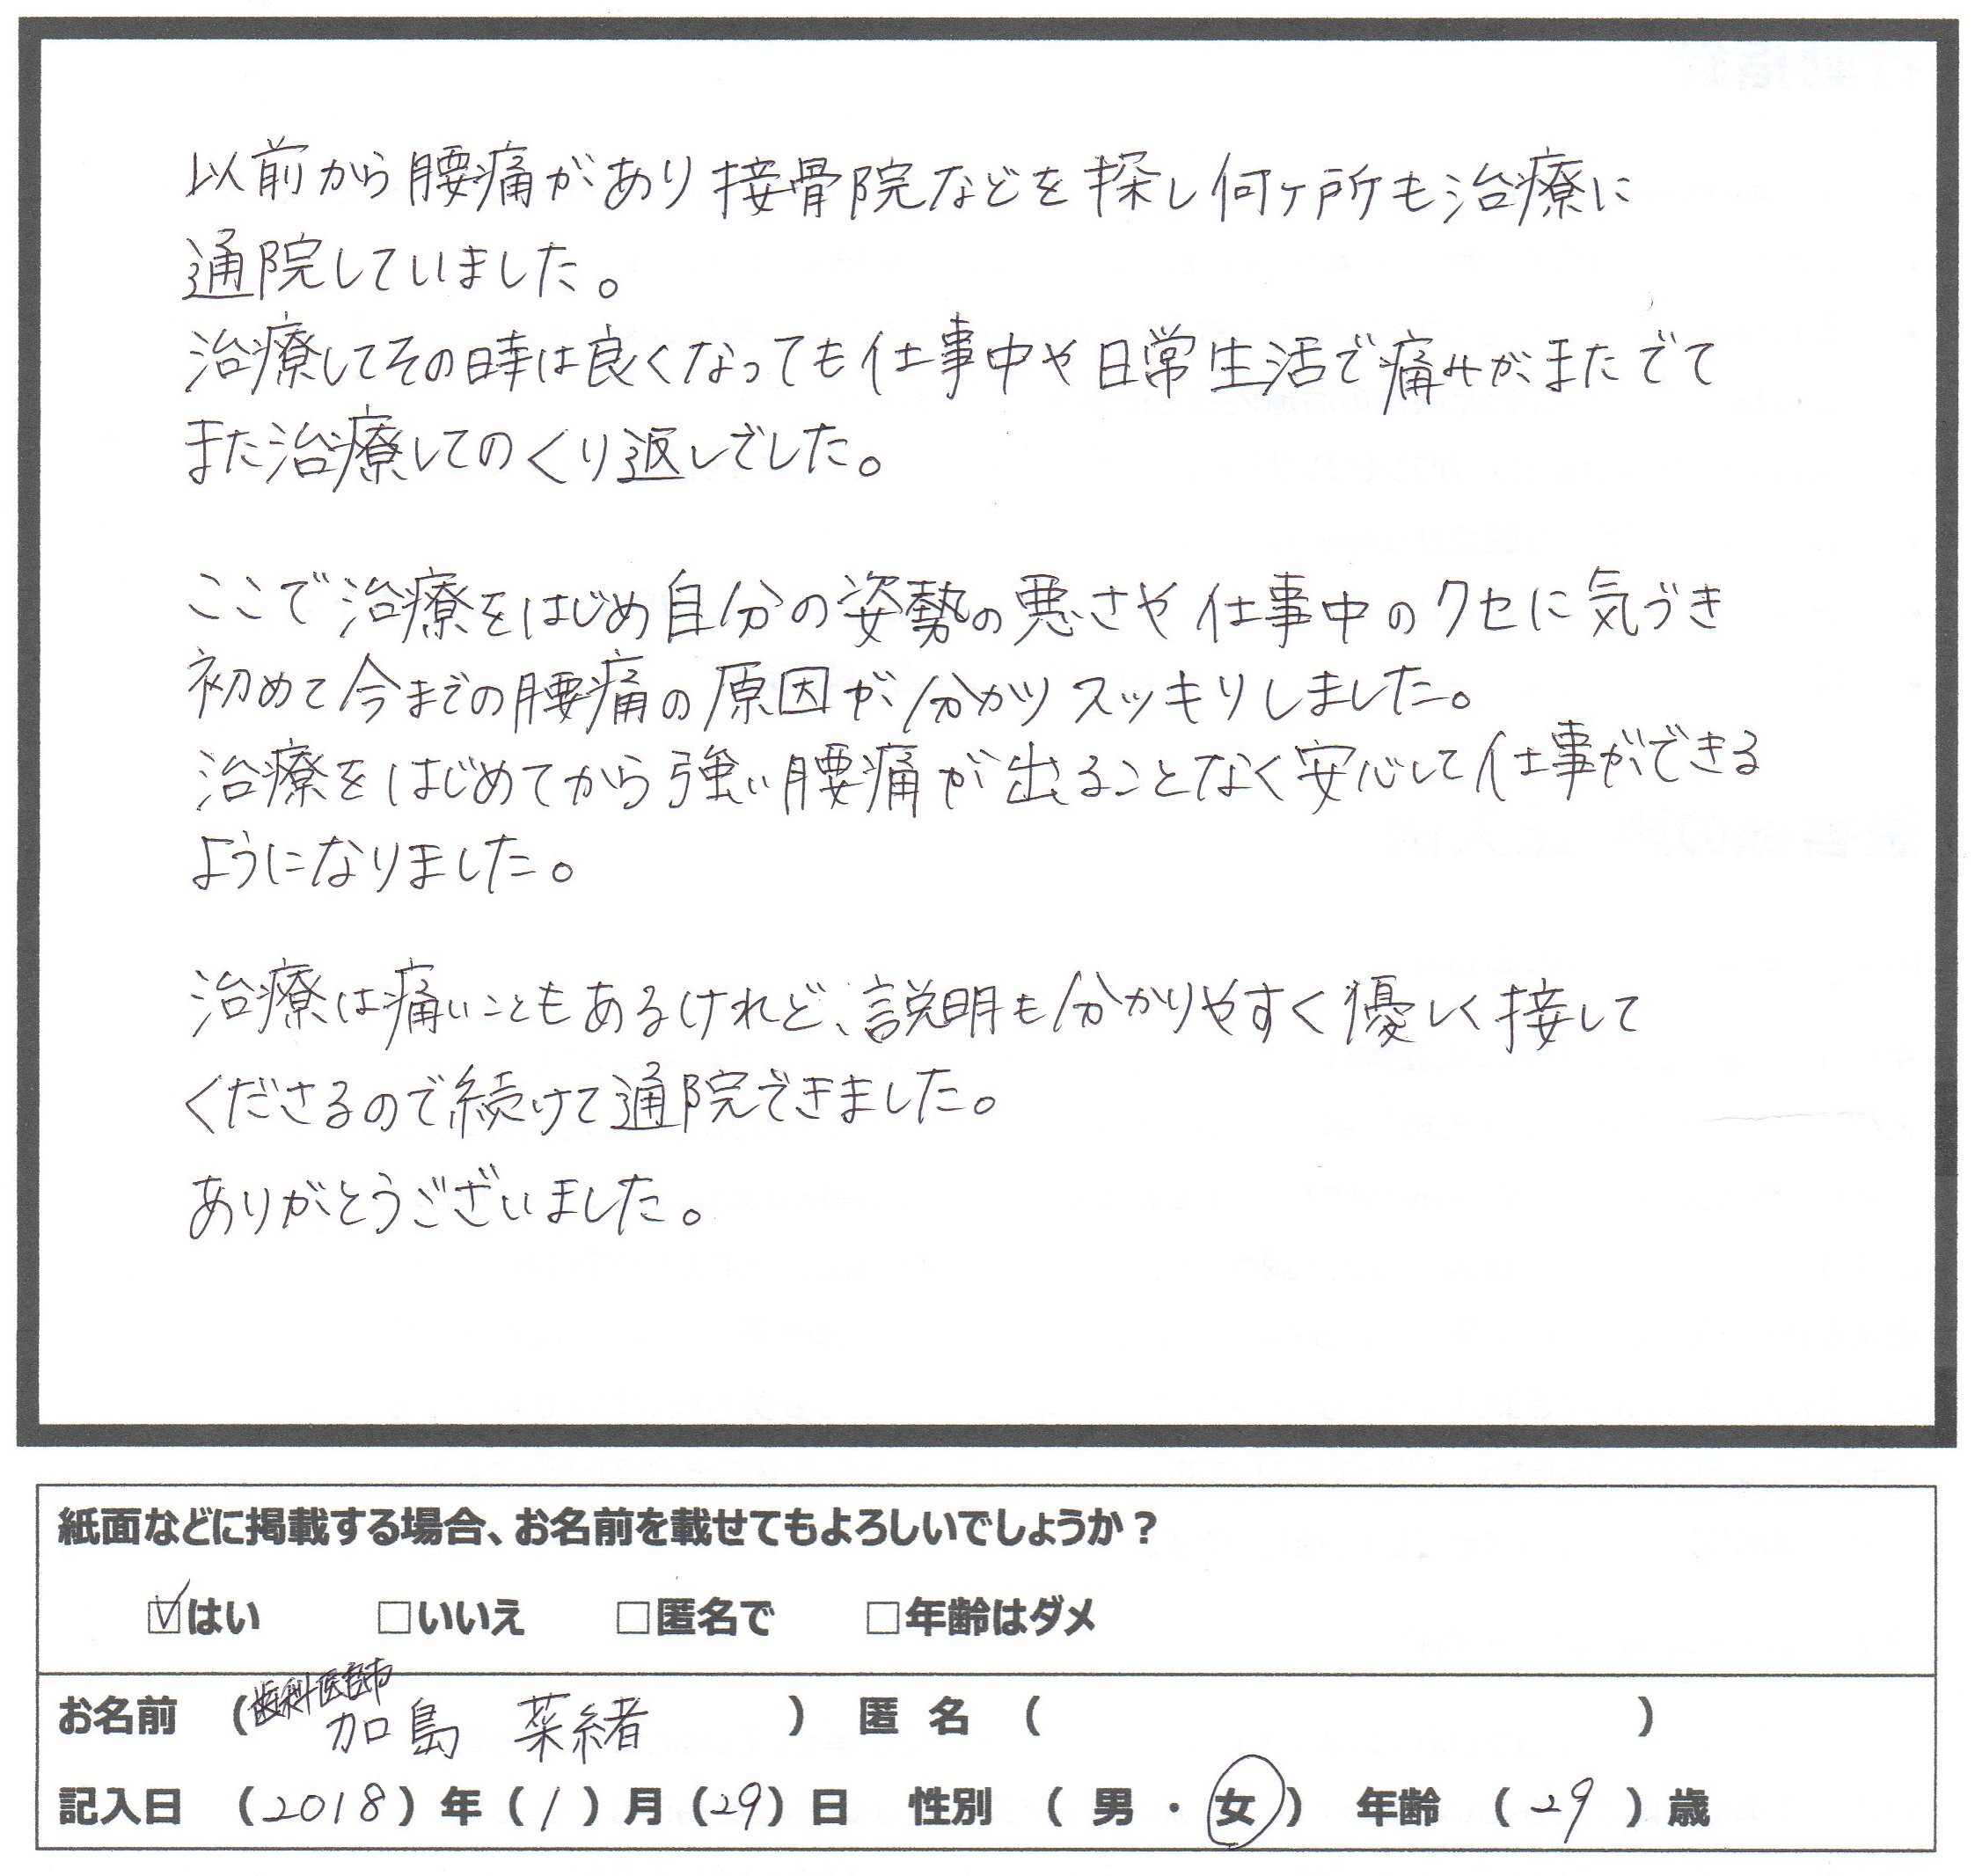 以前から腰痛があり接骨院などを探し何ヶ所も治療に
通院していました。
治療してその時は良くなっても仕事中や日常生活で痛みがまたでて
また治療してのくり返しでした。
ここで治療をはじめ自分の姿勢の悪さや仕事中のクセに気づき
初めて今までの腰痛の原因が分かりスッキリしました。
治療をはじめてから強い腰痛が出ることなく安心して仕事ができる
ようになりました。
治療は痛いこともあるけれど、説明も分かりやすく優しく接して
くださるので続けて通院できました。
ありがとうございました。
紙面などに掲載する場合、お名前を載せてもよろしいでしょうか？
☑はい □いいえ □匿名で □年齢はダメ
お名前 （歯科医師 加島 菜緒 ） 匿名 （ ）
記入日 （2018）年（1）月（29）日 性別 （ 男・女 ） 年齢 （ 29 ）歳